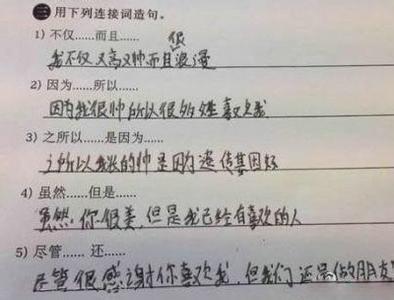 三 用下列连接词造句。
1) 不仅……而且……
很
我不仅又高又帅而且浪漫
2) 因为……所以……
因为我很帅所以很多姓喜欢我
3) 之所以……是因为……
之所以我长的帅是因为遗传基因好
4) 虽然……但是……
虽然你很美，但是我已经有喜欢的人
5) 尽管…… 还……
尽管很感谢你喜欢我，但我们还是做朋友